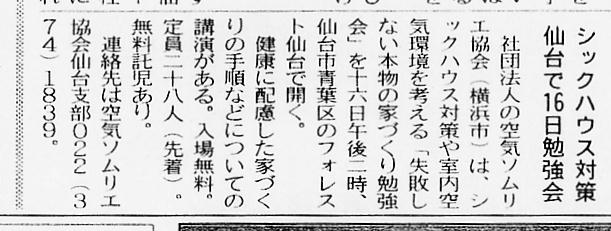 シックハウス対策
仙台で16日勉強会
社団法人の空気ソムリ
エ協会（横浜市）は、シ
ックハウス対策や室内空
気環境を考える「失敗し
ない本物の家づくり勉強
会」を十六日午後二時、
仙台市青葉区のフォレス
ト仙台で開く。
健康に配慮した家づく
りの手順などについての
講演がある。入場無料。
定員二十八人（先着）。
無料託児あり。
連絡先は空気ソムリエ
協会仙台支部０２２（３
７４）１８３９。